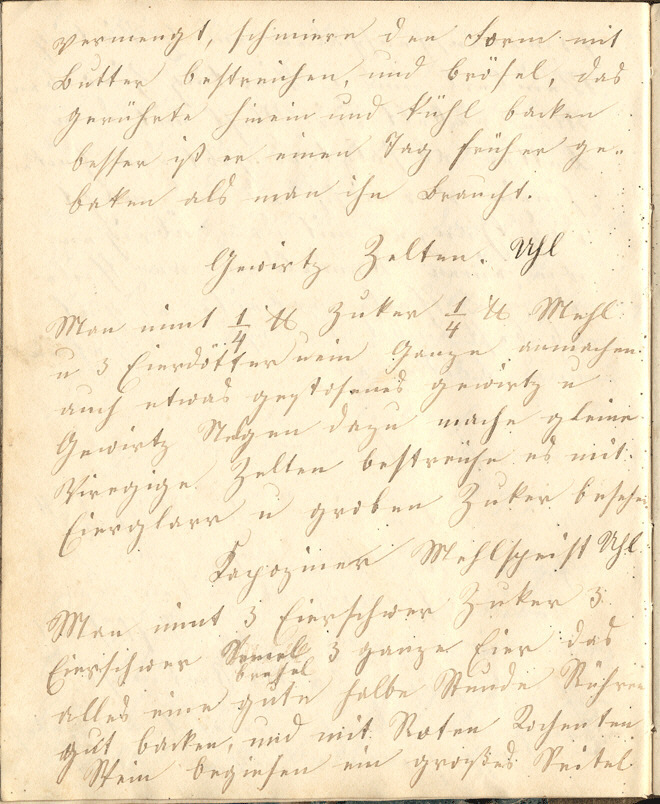 vermengt, schmiere den Form mit
Butter bestreichen, und brösel, das
gerührte hinein und kühl backen
besser ist er einen Tag früher ge-
baken als man ihn Braucht.
Gewirtz Zelten. Uhl
Man nimt 1/4 ℔ Zuker 1/4 ℔ Mehl
u 3 Eierdötter ein Ganze anmachen
auch etwas gestosenes gewirtz u
Gewirtz Nagen dazu mache gleine
Zelten bestreiche es mit
Eierglarr u groben Zuker besehe
Kapoziner Mehlspeist Uhl
Man nimt 3 Eierschwer Zuker 3
Eierschwer Semel 3 ganze Eier das
brösel
alles eine gute halbe Stunde Rühren
gut backen, und mit Roten Kochenten
Wein begiesen ein großes Seitel